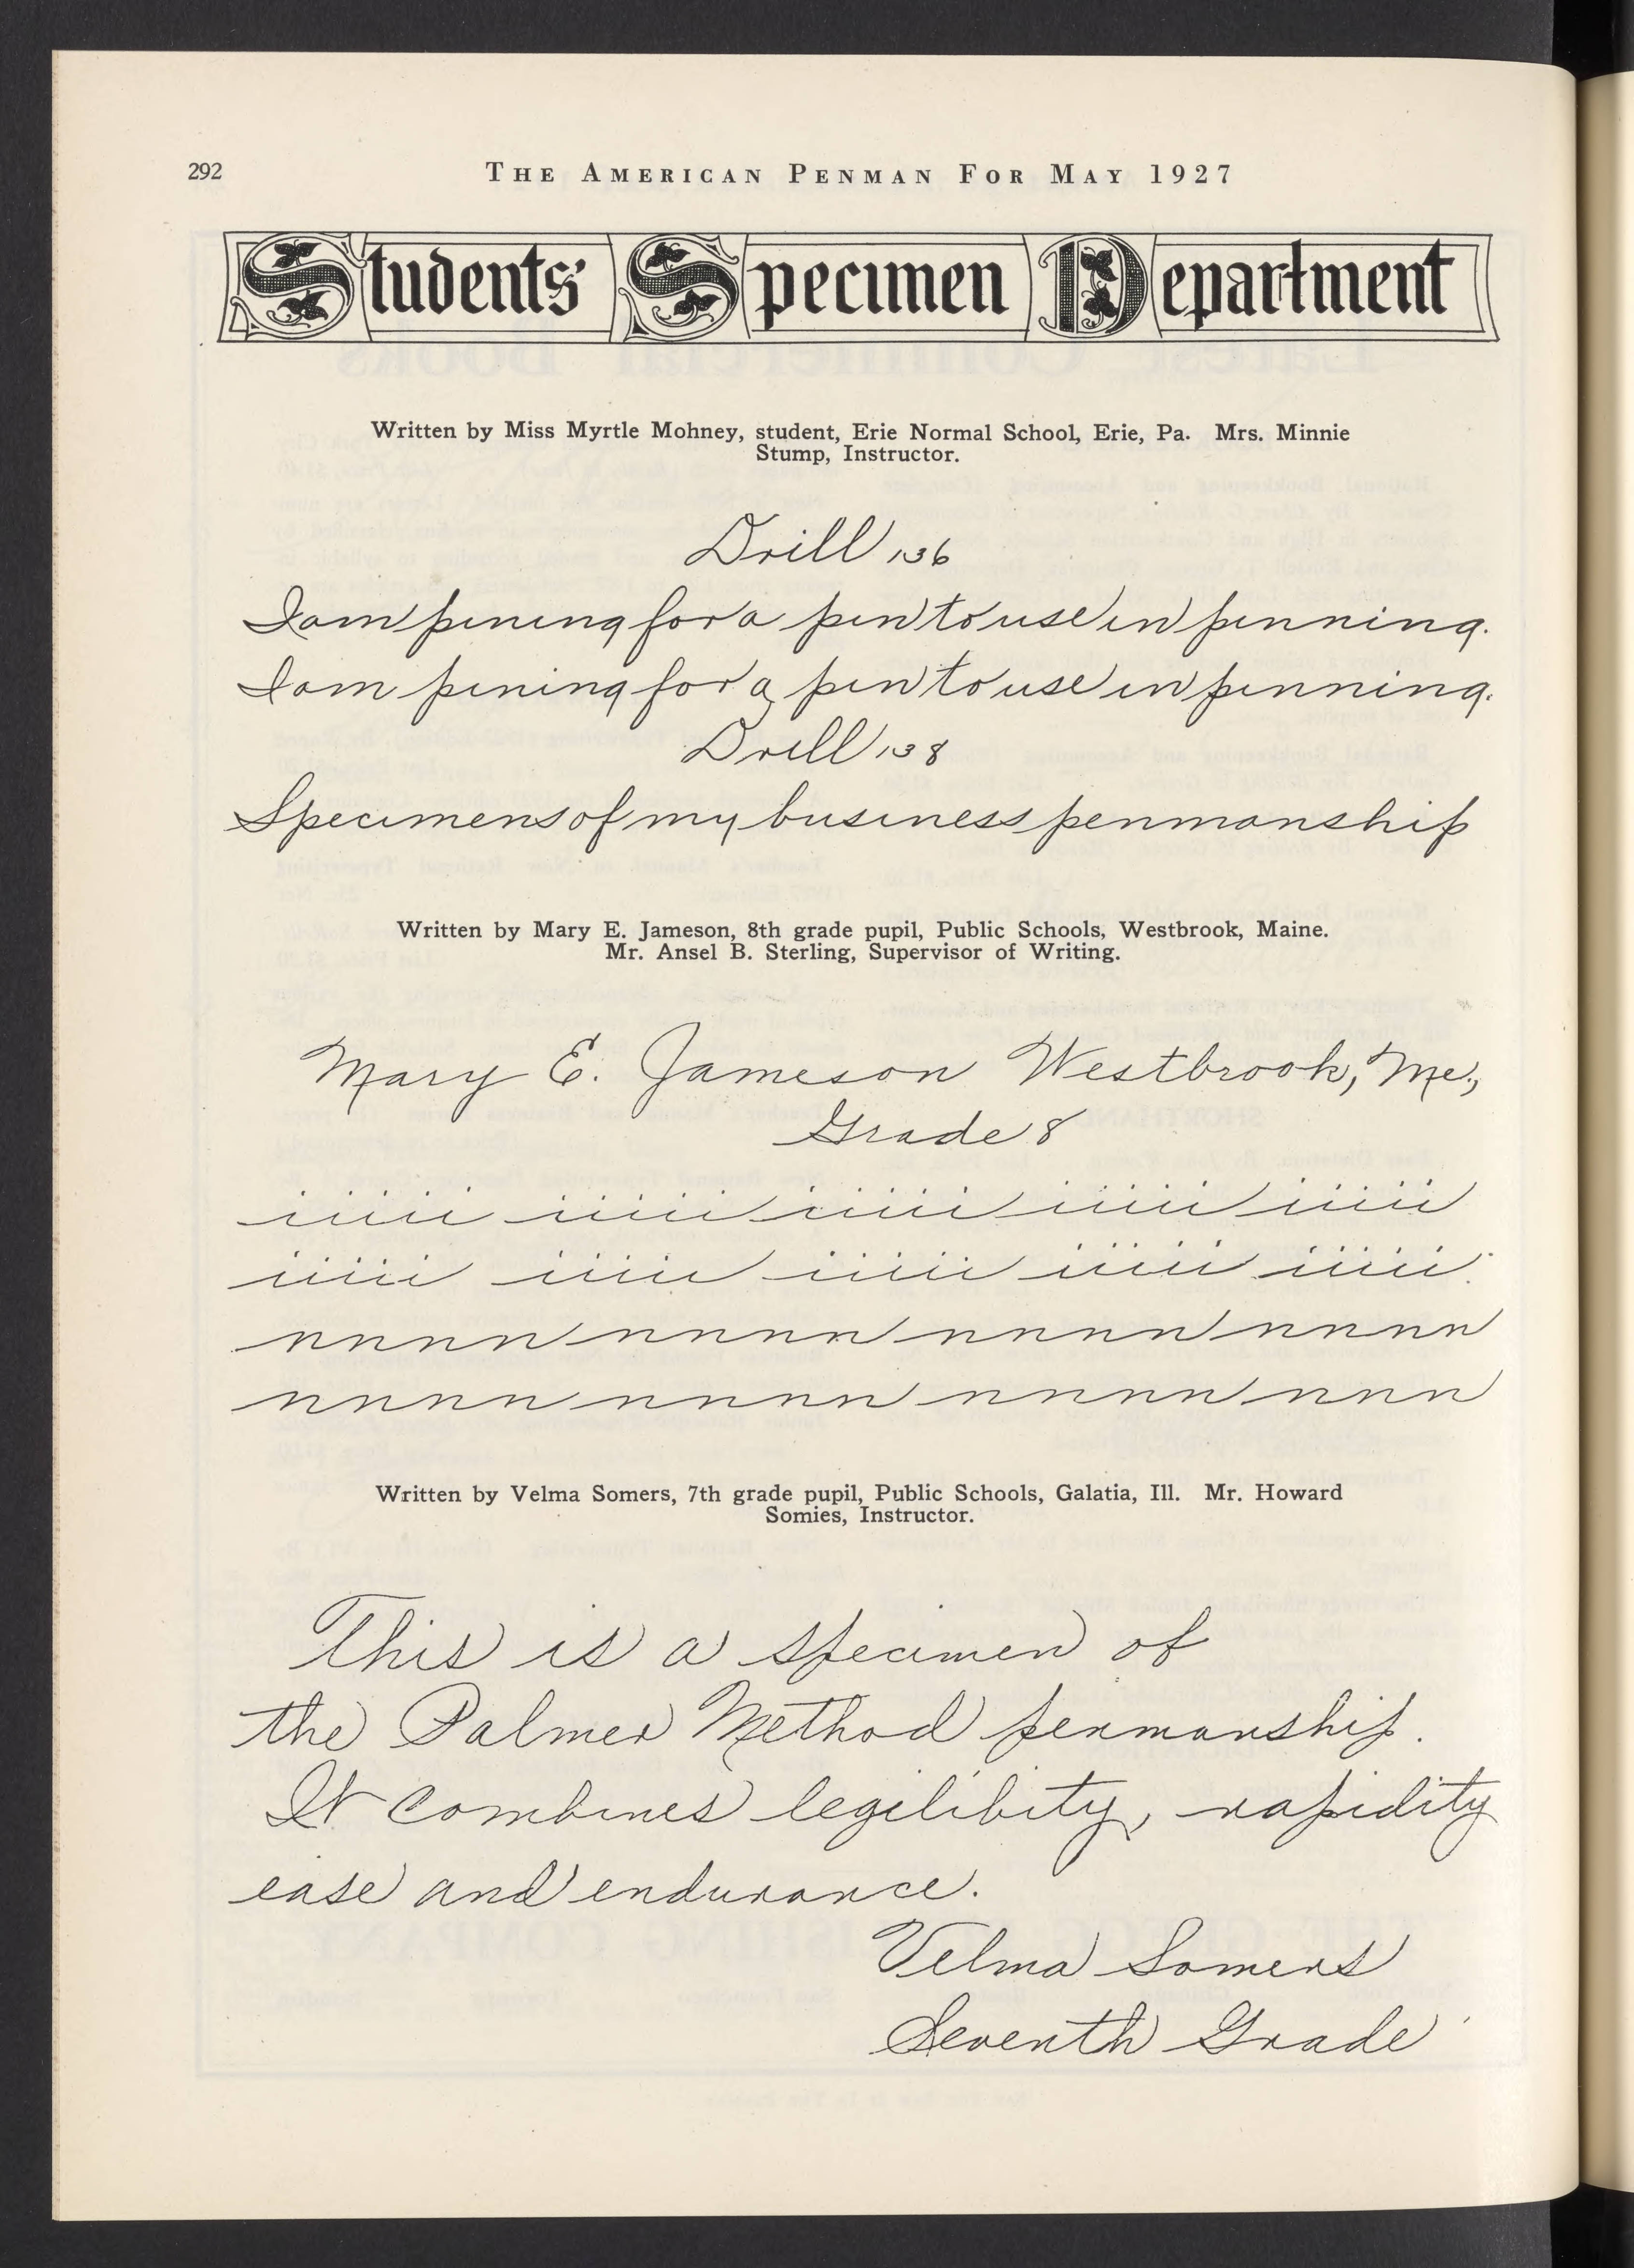 292
THE AMERICAN PENMAN FOR MAY 1927
Students' Specimen Department
Written by Miss Myrtle Mohney, student, Erie Normal School, Erie, Pa. Mrs. Minnie
Stump, Instructor.
Drill 136
I am pining for a pen to use in penning.
I am pining for a pen to use in penning.
Drill 138
Specimens of my business penmanship
Written by Mary E. Jameson, 8th grade pupil, Public Schools, Westbrook, Maine.
Mr. Ansel B. Sterling, Supervisor of Writing.
Mary E. Jameson Westbrook, Me.,
Grade 8
iiiii iiiii iiiii iiiii iiiii
iiiii iiiii iiiii iiiii iiiii
nnnnn nnnnn nnnnn nnnnn
nnnnn nnnnn nnnnn nnnn
Written by Velma Somers, 7th grade pupil, Public Schools, Galatia, Ill. Mr. Howard
Somies, Instructor.
This is a specimen of
the Palmer Method penmanship.
It combines legilibity, rapidity
ease and endurance.
Velma Somers
Seventh Grade